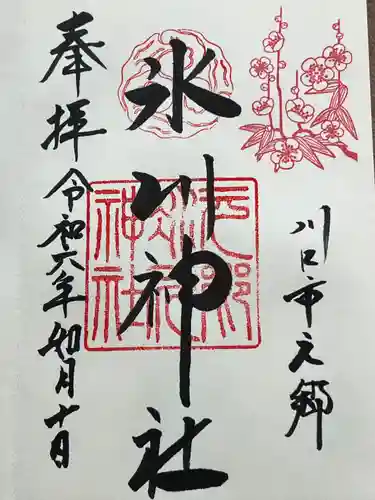 川口市元郷
氷川神社
奉拝
令和六年如月十日
元郷氷川神社